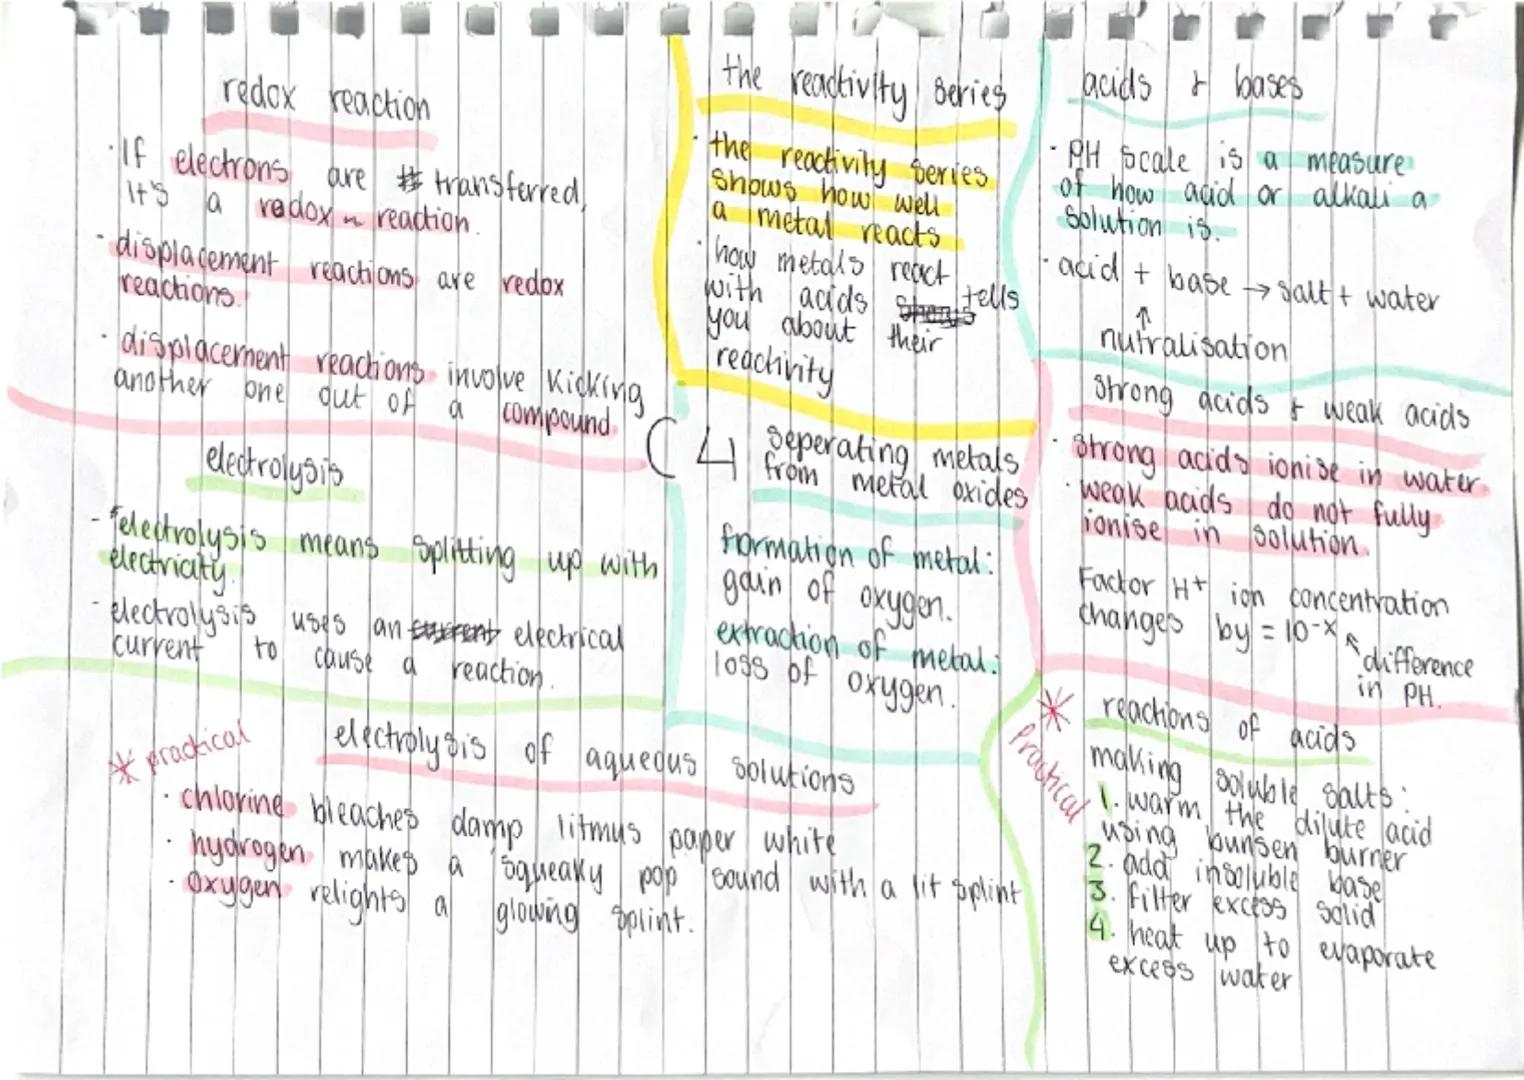 redox reaction
· If electrons are transferred,
It's a redox reaction.
· displacement reactions are redox
reactions.
· displacement reactions involve kicking
another one out of a compound.
the reactivity series
· the reactivity series
shows how well
a metal reacts
· how metals react
with acids tells
you about their
reactivity
acids & bases
· PH scale is a measure
of how acid or alkali a
solution is.
· acid + base → salt + water
↑
nutralisation
C4
electrolysis
- electrolysis means splitting up with
electricity.
- electrolysis uses an electrical
current to cause a reaction.
seperating metals
from metal oxides
formation of metal:
gain of oxygen.
extraction of metal:
loss of oxygen.
strong acids & weak acids
· strong acids ionise in water.
· weak acids do not fully
ionise in solution.
Factor H⁺ ion concentration
changes by = 10⁻ˣ
difference
in PH.
* practical
electrolysis of aqueous solutions
· chlorine bleaches damp litmus paper white
· hydrogen makes a squeaky pop sound with a lit splint
· oxygen relights a glowing splint.
* practical
reactions of acids
making soluble salts:
1. warm the dilute acid
using bunsen burner
2. add insoluble base
3. filter excess solid
4. heat up to evaporate
excess water